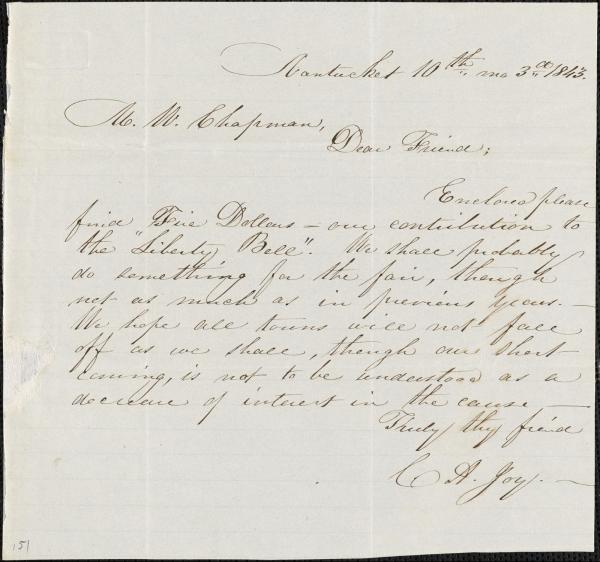 Nantucket 10th mo 3d 1843.
M. W. Chapman,
Dear Friend;
Enclosed please
find Five Dollars – our contribution to
the "Liberty Bell". We shall probably
do something for the fair, though
not as much as in previous years. –
We hope all towns will not fall
off as we shall, though our short
coming, is not to be understood as a
decrease of interest in the cause –
Truly thy friend
C A. Joy. –
151